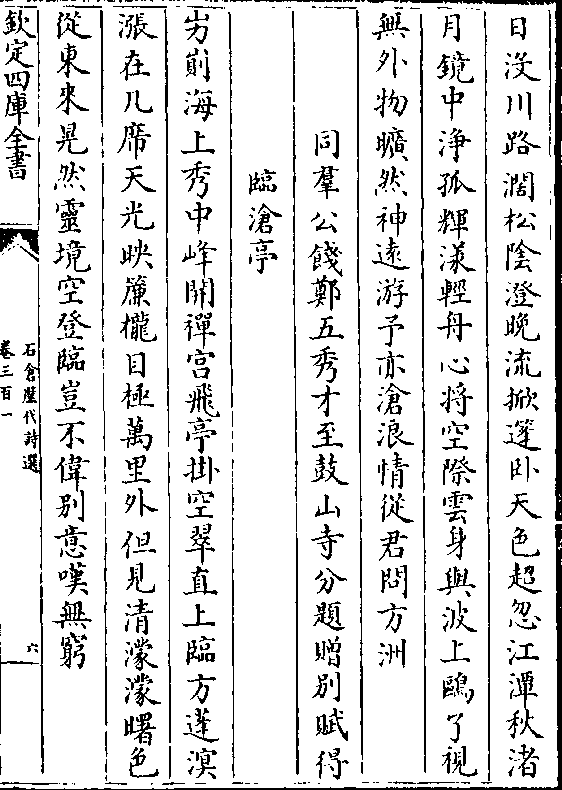 日没川路濶松陰澄晚流掀篷卧天色超忽江潭秋渚
月鏡中浄孤輝漾輕舟心將空際雲身與波上鷗了視
無外物曠然神遠游予亦滄浪情從君問方洲
同羣公餞鄭五秀才至鼓山寺分題贈別賦得
臨滄亭
屴崱海上秀中峰開禪宫飛亭掛空翠直上臨方蓬溟
漲在几席天光映簾櫳目極萬里外但見清濛濛曙色
從東來晃然靈境空登臨豈不偉別意嘆無窮
欽定四庫全書
石倉歴代詩選
卷三百一
六